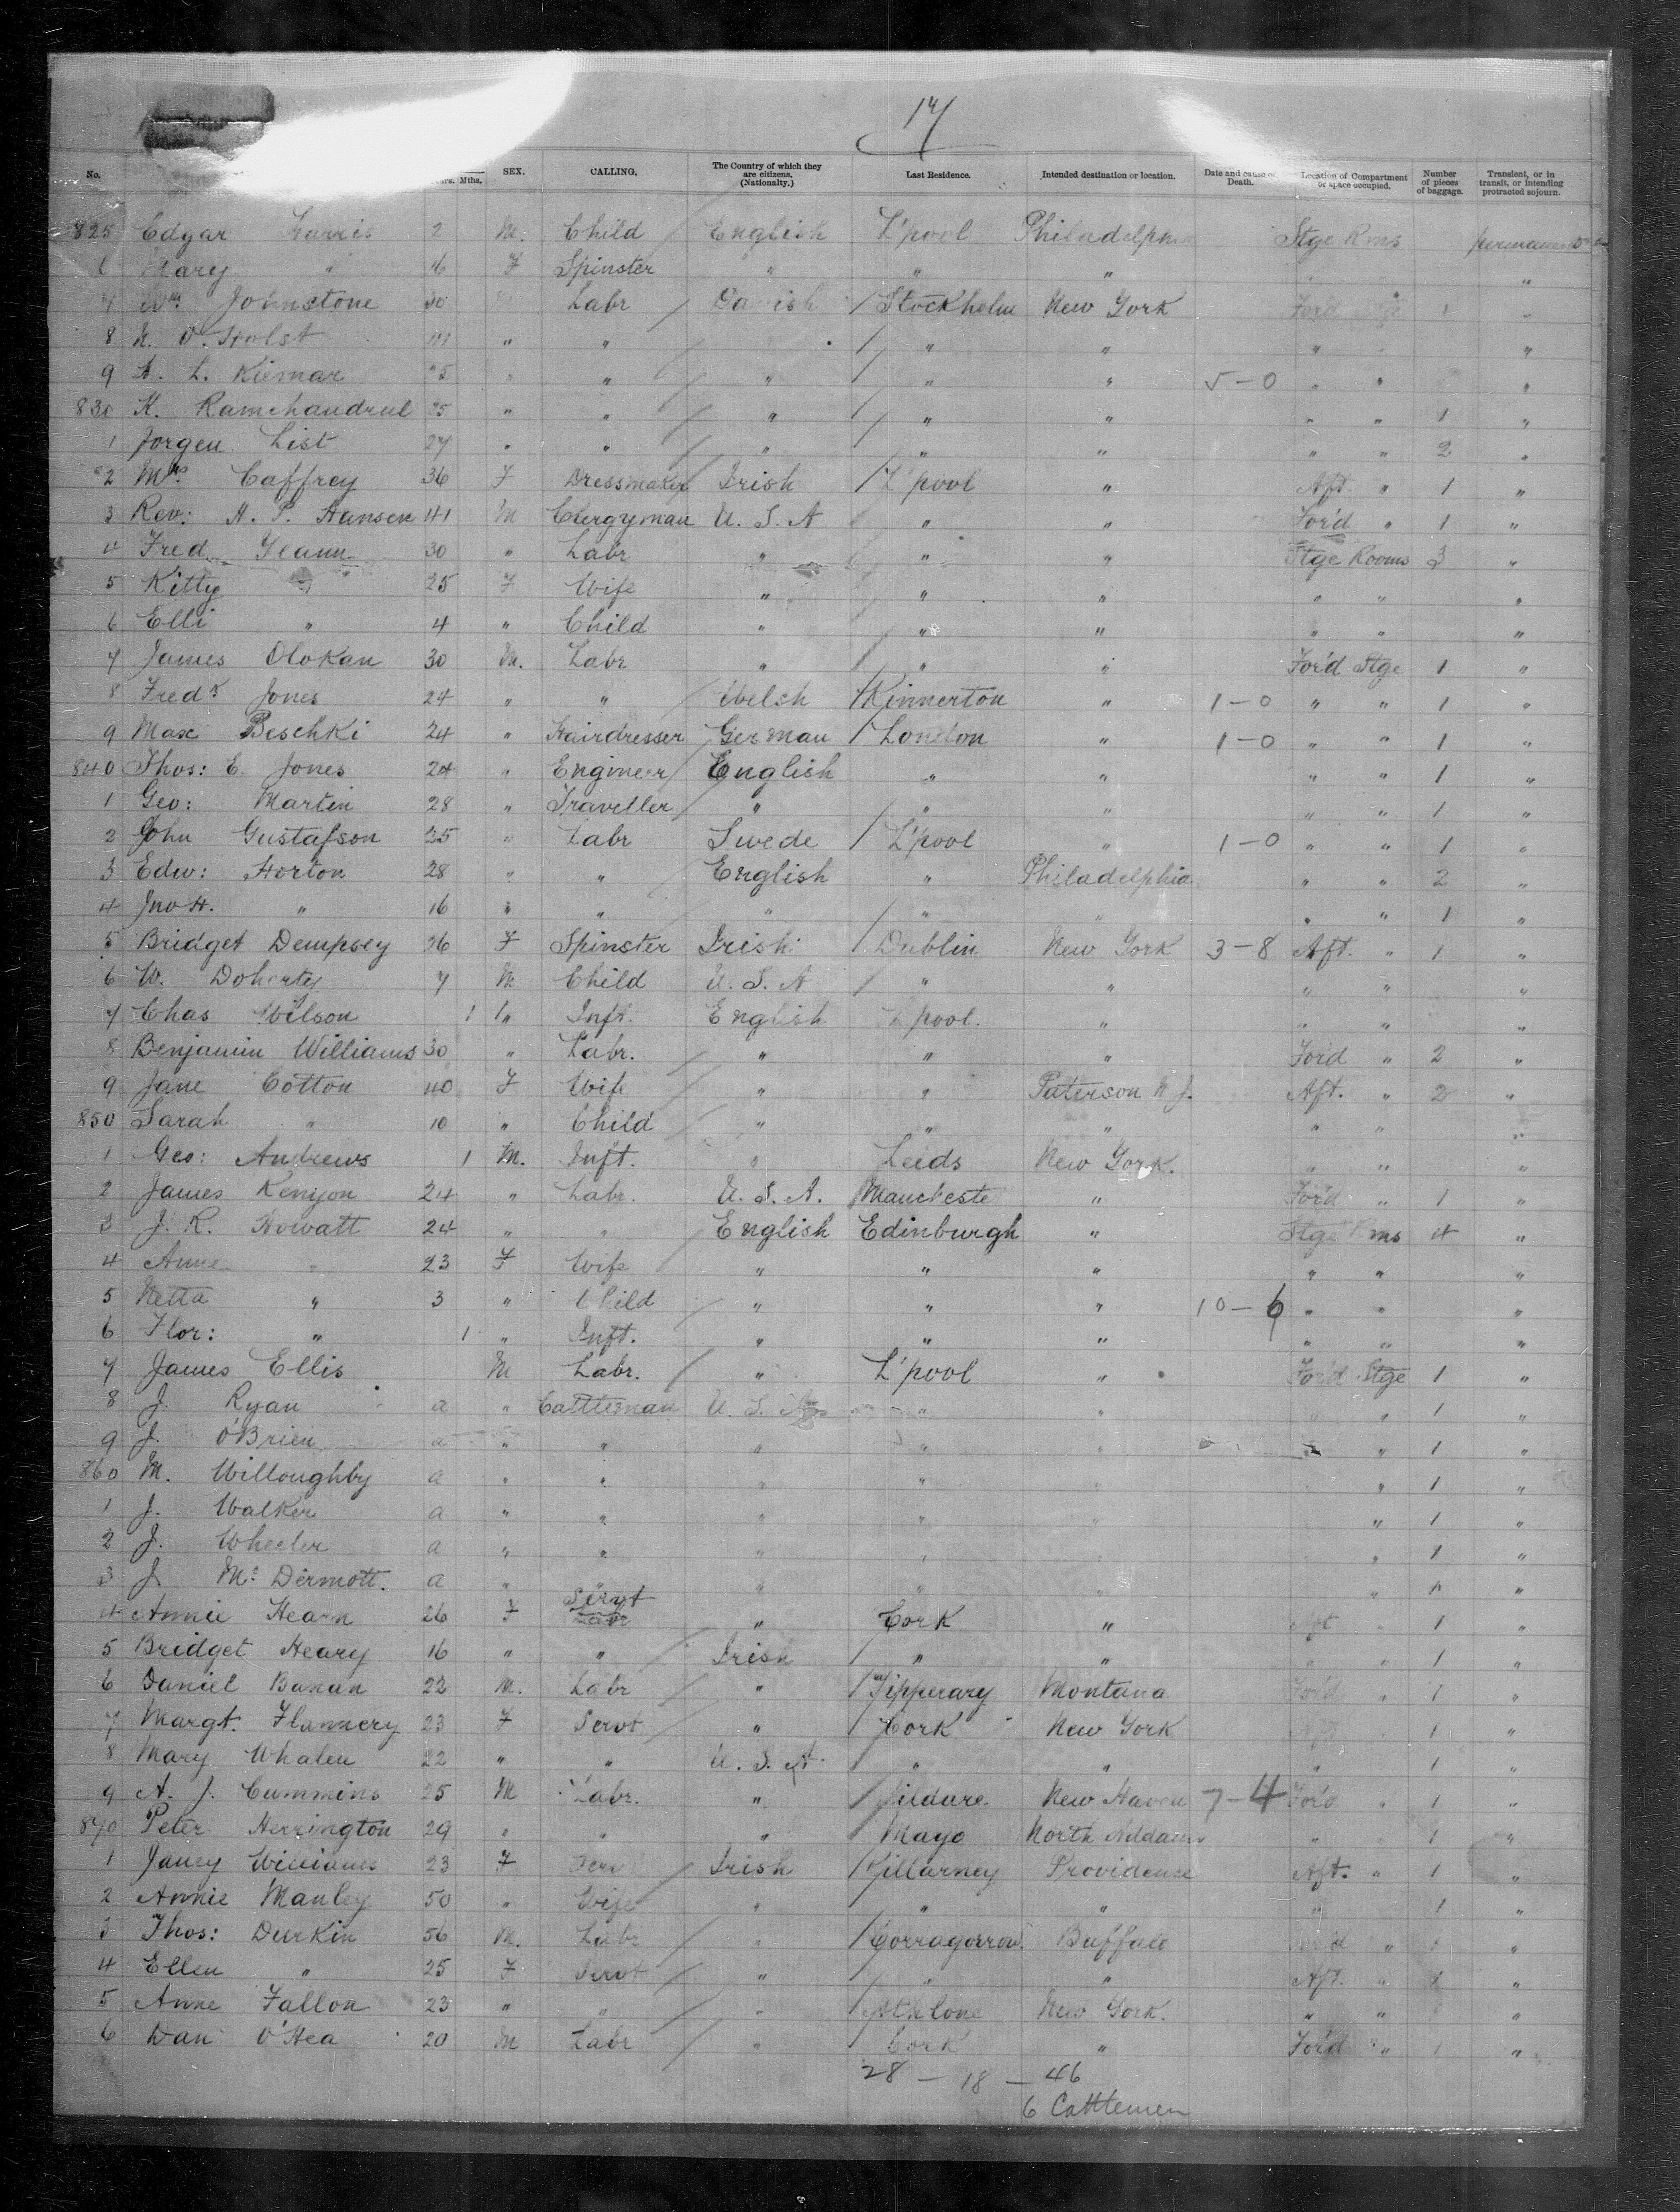 14
No. Mths. SEX. CALLING. The Country of which they are citizens. (Nationalty.) Last Residence. Intended destination or location. Date and cause of Death. Location of Compartment or space occupied. Number of pieces of baggage. Transient, or in transit, or intending protracted sojourn.
825 Edgar Harris 2 M. Child English L'pool Philadelphia Stge Rms
6 Mary " 16 F Spinster " " " "
7 Wm Johnstone 30 Labr Danish Stockholm New York Ford Stge 1 "
8 N. O. Holst " " " " " "
9 A. L. Kiemar " " " " " 5-0 " " "
830 K. 25 " " " " " " " 1 "
1 Jorgen List 27 " " " " " " " 2 "
2 Mrs Caffrey 36 F Dressmaker Irish L'pool " Aft. " 1 "
3 Rev: H. P. Hansen 41 M Clergyman U.S.A " " For'd " 1 "
4 Fred 30 " Labr " " " Stge Rooms 3 "
5 Kitty " 25 F Wife " " " " " "
6 Elli " 4 " Child " " " " " "
7 James Olokan 30 M. Labr " " " For'd Stge 1 "
8 Fredk Jones 24 " " Welsh Kinnerton " 1-0 " " 1 "
9 Max Beschki 24 " Hairdresser German London " 1-0 " " 1 "
840 Thos: E. Jones 24 " Engineer English " " " " 1 "
1 Geo: Martin 28 " Traveller " " " " " 1 "
2 John Gustafson 25 " Labr Swede L'pool " 1-0 " " 1 "
3 Edw: Horton 28 " " English " Philadelphia " " 2 "
4 Jno H. " 16 " " " " " " " 1 "
5 Bridget Dempsey 26 F Spinster Irish Dublin New York 3-8 Aft. " 1 "
6 W. Doherty 7 M Child U.S.A " " " " "
7 Chas Wilson 1 " Inft. English L'pool. " " " "
8 Benjamin Williams 30 " Labr. " " " For'd " 2 "
9 Jane Cotton 40 F Wife " " Paterson N.J. Aft. " 2 "
850 Sarah " 10 " Child " " " " " "
1 Geo: Andrews 1 M. Inft. " Leeds New York. " " "
2 James Kenyon 24 " Labr. U.S.A. Mancheste " For'd " 1 "
3 J. R. Howatt 24 " " English Edinburgh " Stge Rms 4 "
4 Anne " 23 F Wife " " " " " "
5 Netta " 3 " Child " " " 10-6 " " "
6 Flor: " 1 " Inft. " " " " " "
7 James Ellis M Labr. " L'pool " For'd Stge 1 "
8 J. Ryan a " Cattleman U.S.A " " " " 1 "
9 J. O'Brien a " " " " " " " 1 "
860 M. Willoughby a " " " " " " 1 "
1 J. Walker a " " " " " " 1 "
2 J. Wheeler a " " " " " 1 "
3 J. McDermott. a " " " " " " "
4 Annie Hearn 26 F Servt Labr " Cork " Aft " 1 "
5 Bridget Heary 16 " " Irish " " " " 1 "
6 Daniel Banan 22 M. Labr " Tipperary Montana For'd " 1 "
7 Margt. Flannery 23 F Servt " Cork New York 1 "
8 Mary Whalen 22 " " U.S.A. " " " 1 "
9 A. J. Cummins 25 M Labr. " Kildare. New Haven 7-4 For'd " 1 "
870 Peter Herrington 29 " " " Mayo North Addams " " 1 "
1 Janey Williams 23 F Serv Irish Killarney Providence Aft. " 1 "
2 Annie Manley 50 " Wife " " " " 1 "
3 Thos: Durkin 56 M. Labr " Corragorrow Buffalo For'd " "
4 Ellen " 25 F Servt " " " Aft. " "
5 Anne Fallon 23 " " " Athlone New York. " " "
6 Dan O'Hea 20 M Labr " Cork " For'd " 1 "
28 - 18 - 46
6 Cattlemen